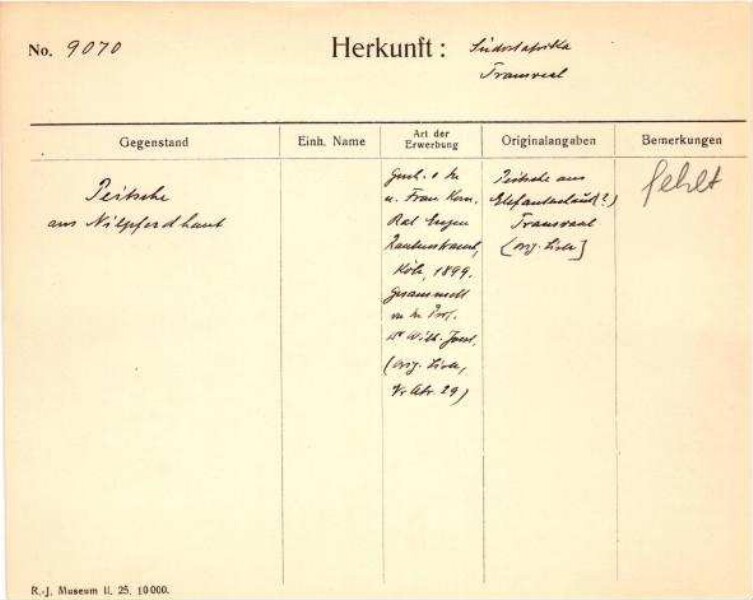 No. 9070
Herkunft: Südostafrika
Transvaal
Gegenstand
Einh. Name
Art der
Erwerbung
Originalangaben
Bemerkungen
Peitsche
aus Nilpferdhaut
Gesch. v. Hr
u. Frau Kom.
Rat Eugen
Rautenstrauch,
Köln, 1899.
Gesammelt
Prof.
Dr Wilh. Joest.
(orig. Liste,
29)
Peitsche aus
Elefantenhaut (?)
Transvaal
[orig. Liste]
fehlt
R.-J. Museum II. 25. 10000.